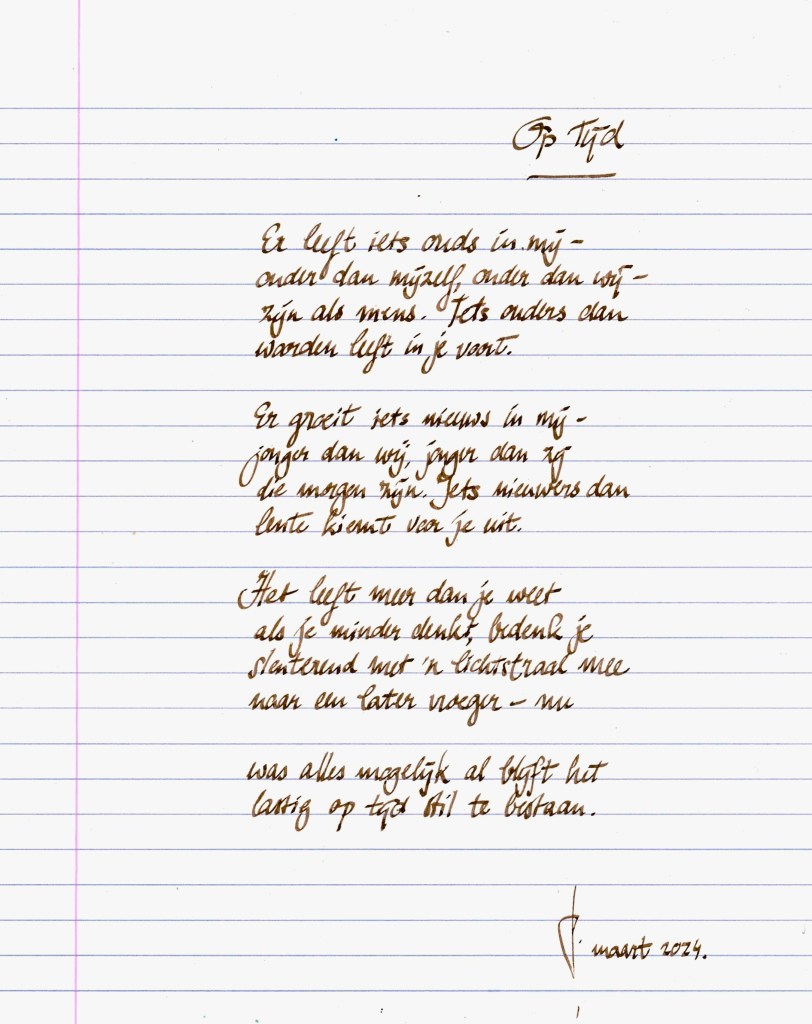 Op tijd
Er leeft iets ouds in mij –
ouder dan mijzelf, ouder dan wij –
zijn als mens. Iets ouders dan
warden leeft in je voort.
Er groeit iets nieuws in mij –
jonger dan wij, jonger dan zij
die morgen zijn. Iets nieuwers dan
lente kiemt voor je uit.
Het leeft meer dan je weet
als je minder denkt, bedenk je
slenterend met 'n lichtstraal mee
naar een later vroeger – nu
was alles mogelijk al blijft het
lastig op tijd stil te bestaan.
maart 2024.